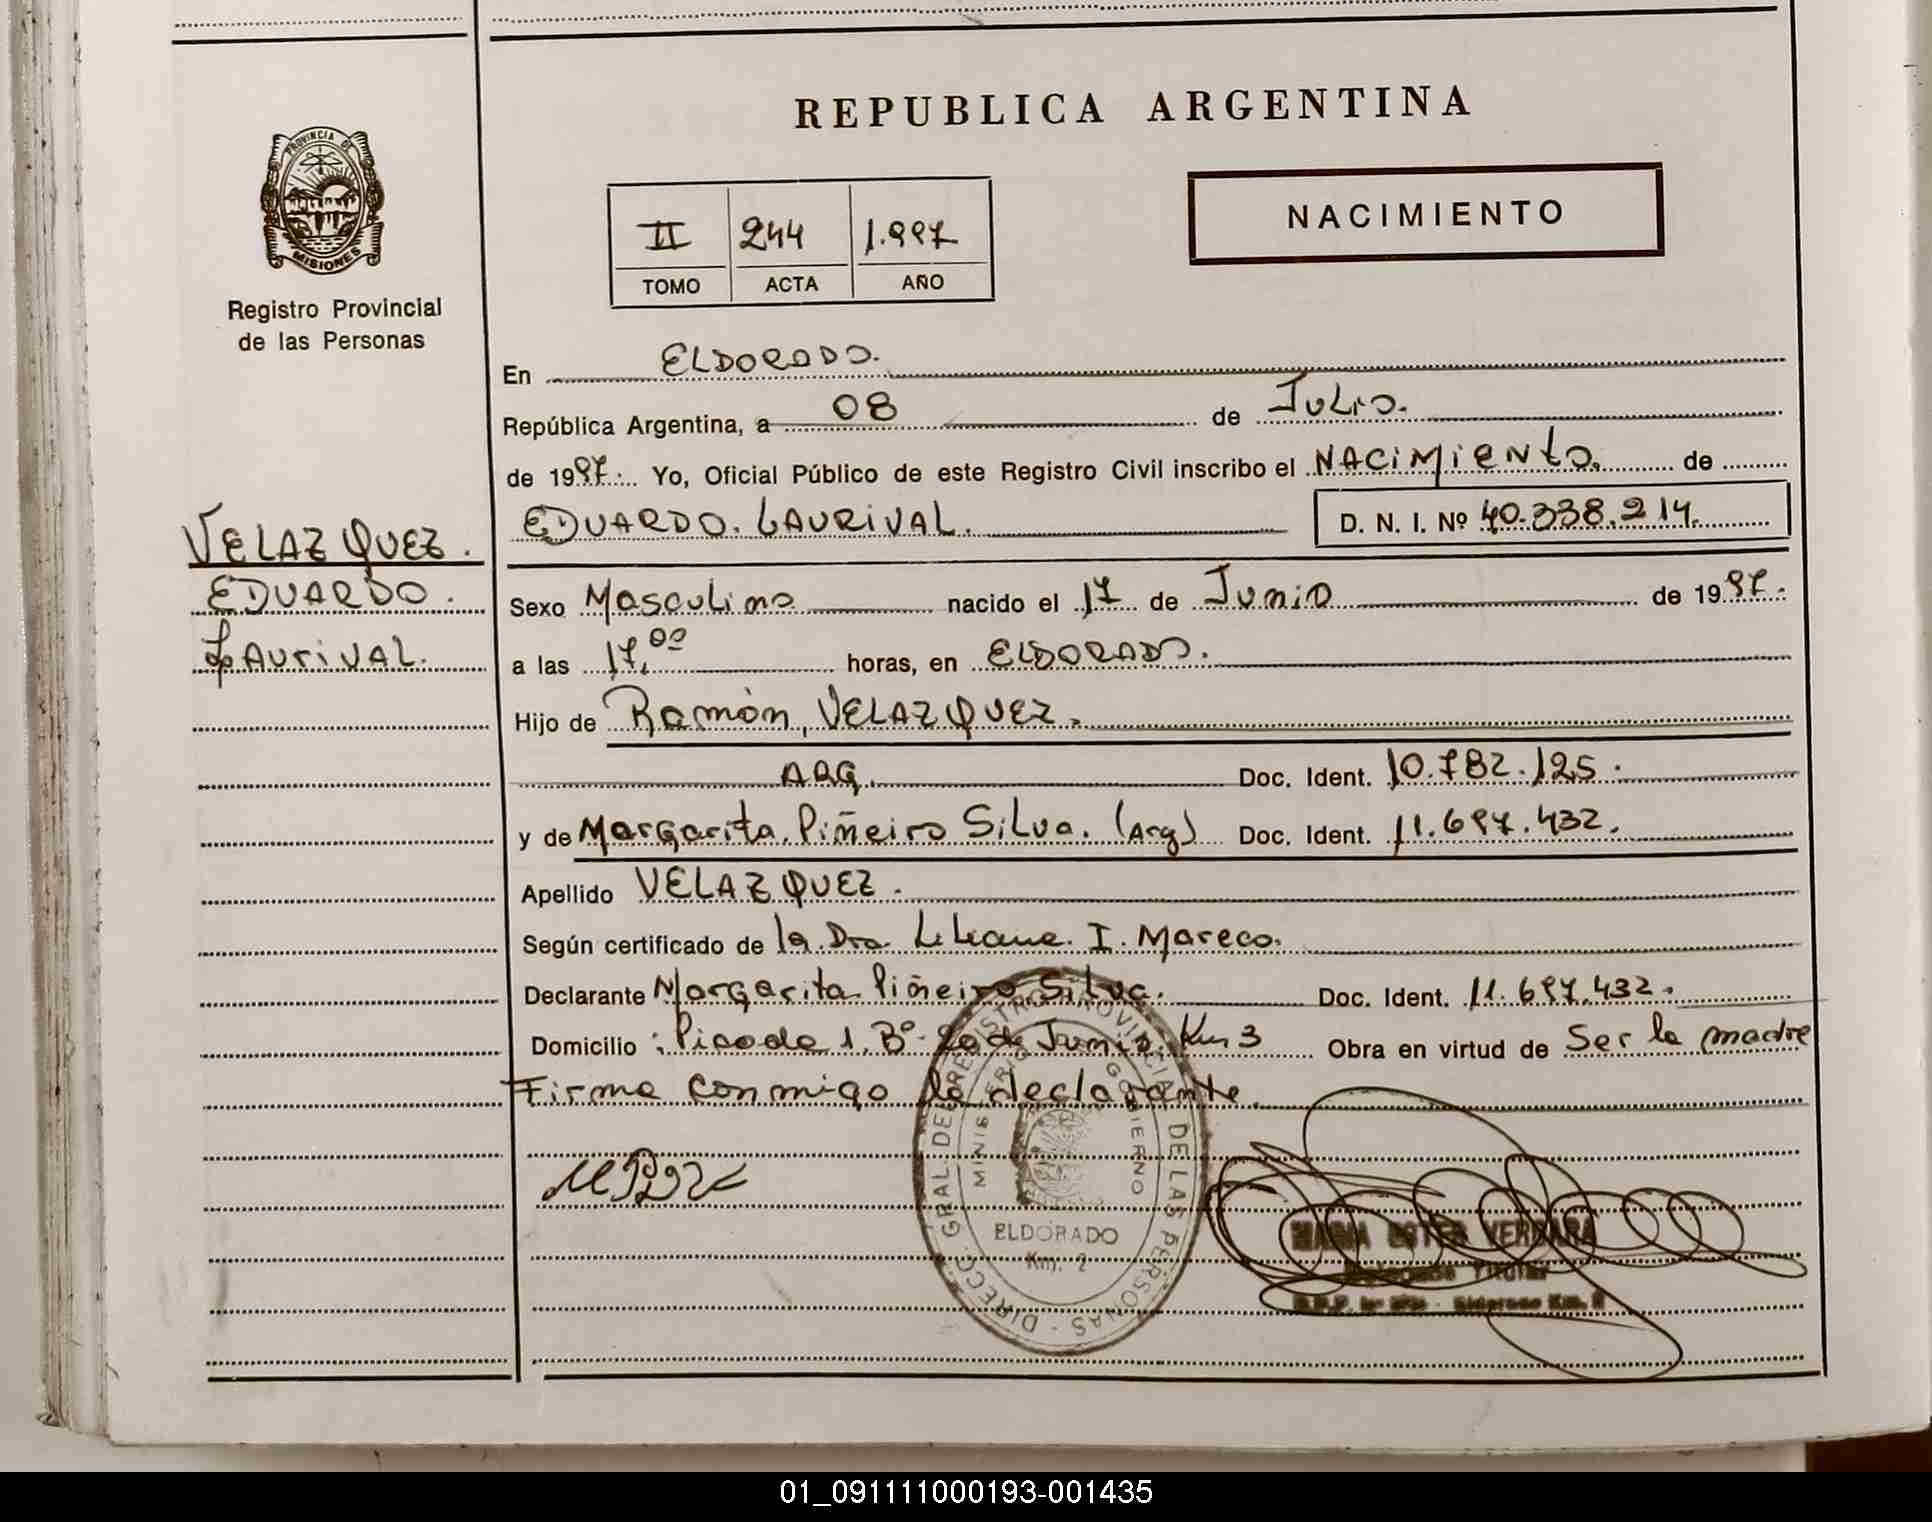 REPUBLICA ARGENTINA
PROVINCIA DE
MISIONES
Registro Provincial
de las Personas
NACIMIENTO
II 244 1.997
TOMO ACTA AÑO
En ELDORADO.
República Argentina, a 08 de Julio.
de 1997. Yo, Oficial Público de este Registro Civil inscribo el NACIMIENTO. de
EDUARDO. LAURIVAL. D. N. I. Nº 40.338.214.
VELAZQUEZ.
EDUARDO.
LAURIVAL.
Sexo Masculino nacido el 17 de Junio de 1997.
a las 17,00 horas, en ELDORADO.
Hijo de Ramón, VELAZQUEZ.
ARG. Doc. Ident. 10.782.125.
y de Margarita. Piñeiro Silva. (Arg) Doc. Ident. 11.697.432.
Apellido VELAZQUEZ.
Según certificado de la Dra. Liliana. I. Mareco.
Declarante Margarita Piñeiro Silva. Doc. Ident. 11.697.432.
Domicilio : Picada 1. Bº 20 de Junio. Km 3 Obra en virtud de Ser la madre
Firma conmigo la declarante.
DIRECC. GRAL. DE REGISTRO PROVINCIAL DE LAS PERSONAS
MINISTERIO GOBIERNO
ELDORADO
Km. 2
MARIA ESTER VERGARA
Titular
Eldorado Km. 2
01_091111000193-001435